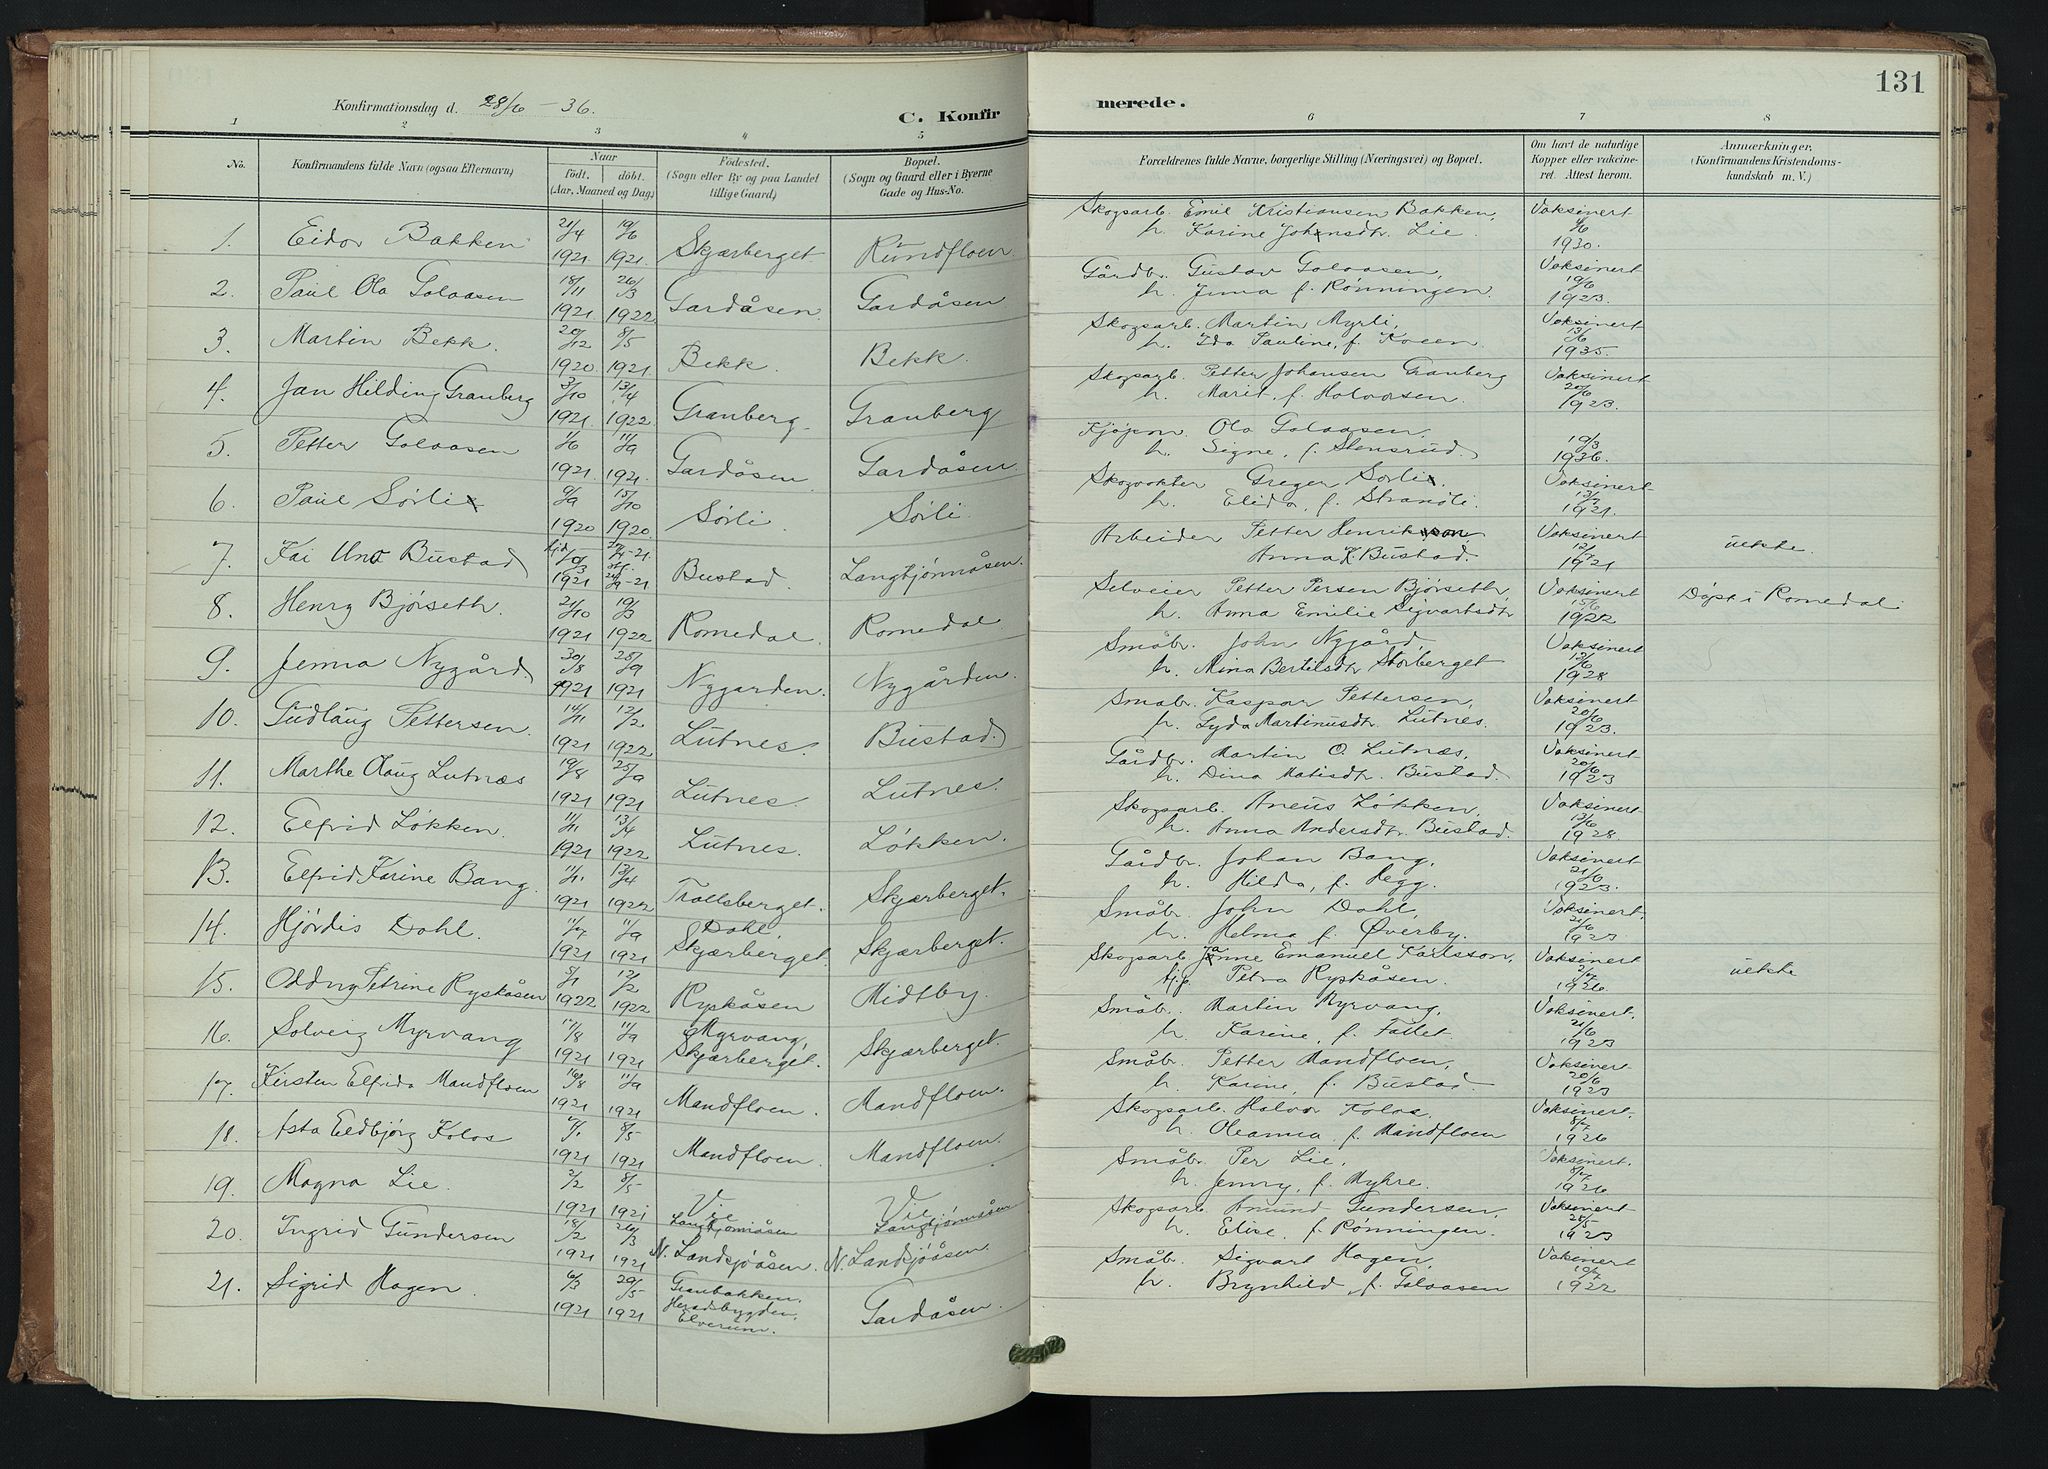 131
Konfirmationsdag d. 28/6 - 36.
C. Konfirmerede.
1 2 3 4 5 6 7 8
No. Konfirmandens fulde Navn (ogsaa Efternavn) Naar født, døbt. (Aar, Maaned og Dag) Fødested. (Sogn eller By og paa Landet tillige Gaard) Bopæl. (Sogn og Gaard eller i Byerne Gade og Hus-No. Forældrenes fulde Navne, borgerlige Stilling (Næringsvei) og Bopæl. Om havt de naturlige Kopper eller vakcineret. Attest herom. Anmærkninger. (Konfirmandens Kristendomskundskab m. V.)
1. Eidor Bakken 21/4 1921. 19/6 1921. Skjærberget Rundfloen. Skogsarb. Emil Kristiansen Bakken, h. Karine Johnsdtr. Lie. Vaksinert 1930.
2. Paul Ola Galaasen 18/11 1921. 26/3 1922. Gardåsen. Gardåsen Gårdbr. Gustav Galaasen, h. Jenna f. Rønningen. Vaksinert 19/6 1923.
3. Martin Bekk. 20/12 1920 8/5 1921 Bekk. Bekk. Skogsarb. Martin Myrli, h. Ida Pauline, f. Koeen. Vaksinert 13/6 1935.
4. Jan Hilding Granberg 3/10 1921. 13/4 1922. Granberg. Granberg Skogsarb. Petter Johansen Granberg h. Marit, f. Halvorsen. Vaksinert 20/6 1923.
5. Petter Galaasen 1/6 1921. 11/9 1921. Gardåsen Gardåsen. Kjøpm. Ola Galaasen, h. Signe, f. Stensrud. 19/3 1936.
6. Paul Sørli 9/9 1920 15/10 1920 Sørli. Sørli. Skogvokter Greger Sørli. h. Elida, f. Strandli. Vaksinert 13/7 1921.
7. Kai Uno Bustad 1921 Bustad. Langtjønnåsen. Arbeider Petter Henrikson Anna K. Bustad. Vaksinert 12/7 1921 uekte.
8. Henry Bjørseth. 21/10 1921 19/3 1922 Romedal. Romedal Selveier Petter Persen Bjørseth, h. Anna Emilie Sigvartsdtr Vaksinert 15/6 1922 Døpt i Romedal
9. Jenna Nygård 30/8 1921 25/9 1921 Nygarden. Nygården. Småbr. John Nygård, h. Mina Bertilsdtr Storberget Vaksinert 12/6 1928
10. Gudlaug Pettersen. 14/11 1921 12/2 1922 Lutnes. Bustad. Småbr. Kaspar Pettersen, h. Lyda Martinusdtr. Lutnes. Vaksinert 20/6 1923.
11. Marthe Olaug Lutnæs 19/8 1921 25/9 1921 Lutnes. Lutnes. Gårdbr. Martin O. Lutnæs, h. Dina Matisdtr. Bustad. Vaksinert 20/6 1923
12. Elfrid Løkken. 11/11 1921 13/4 1922 Lutnes. Løkken. Skogsarb. Aneus Løkken, h. Anna Andersdtr. Bustad. Vaksinert 13/6 1928
13. Elfrid Karine Bang. 11/11 1921 13/4 1922 Trollsberget. Skjærberget. Gårdbr. Johan Bang, h. Hilda, f. Hegg. Vaksinert 21/6 1923.
14. Hjørdis Dahl. 11/7 1921 11/9 1921 Dahl, Skjærberget. Skjærberget. Småbr. John Dahl, h. Helma f. Øverby. Vaksinert. 21/6 1923
15. Oddny Petrine Ryskåsen 5/1 1922 12/2 1922 Ryskåsen Midtby. Skogsarb. Janne Emanuel Karlsson, Petra Ryskåsen. Vaksinert 2/7 1926. uekte
16. Solveig Myrvang 17/8 1921 11/9 1921 Myrvang, Skjærberget. Skjærberget. Småbr. Martin Myrvang, h. Karine, f. Fallet Vaksinert, 21/6 1923
17. Kirsten Elfrida Mandfloen 16/8 1921 11/9 1921 Mandfloen. Mandfloen. Småbr. Petter Mandfloen, h. Karine, f. Bustad Vaksinert 20/6 1923
18. Asta Eldbjørg Kolos 1921 8/5 1921 Mandfloen. Mandfloen. Skogsarb. Halvor Kolos, h. Oleanna f. Mandfloen Vaksinert. 8/7 1926
19. Magna Lie. 2/2 1921 8/5 1921 Vie Vie Småbr. Per Lie, h. Jenny, f. Myhre. Vaksinert. 8/7 1926
20. Ingrid Gundersen 18/2 1921 26/3 1921 Langtjønnåsen N. Landsjøåsen. Langtjønnåsen N. Landsjøåsen. Skogsarb. Amund Gundersen, h. Elise f. Rønningen. Vaksinert 25/5 1923
21. Sigrid Hagen. 6/3 1921 29/5 1921 Granbakken, Heradsbygden, Elverum. Gardåsen. Småbr. Sigvart Hagen, h. Brynhild, f. Galaasen Vaksinert 19/7 1922